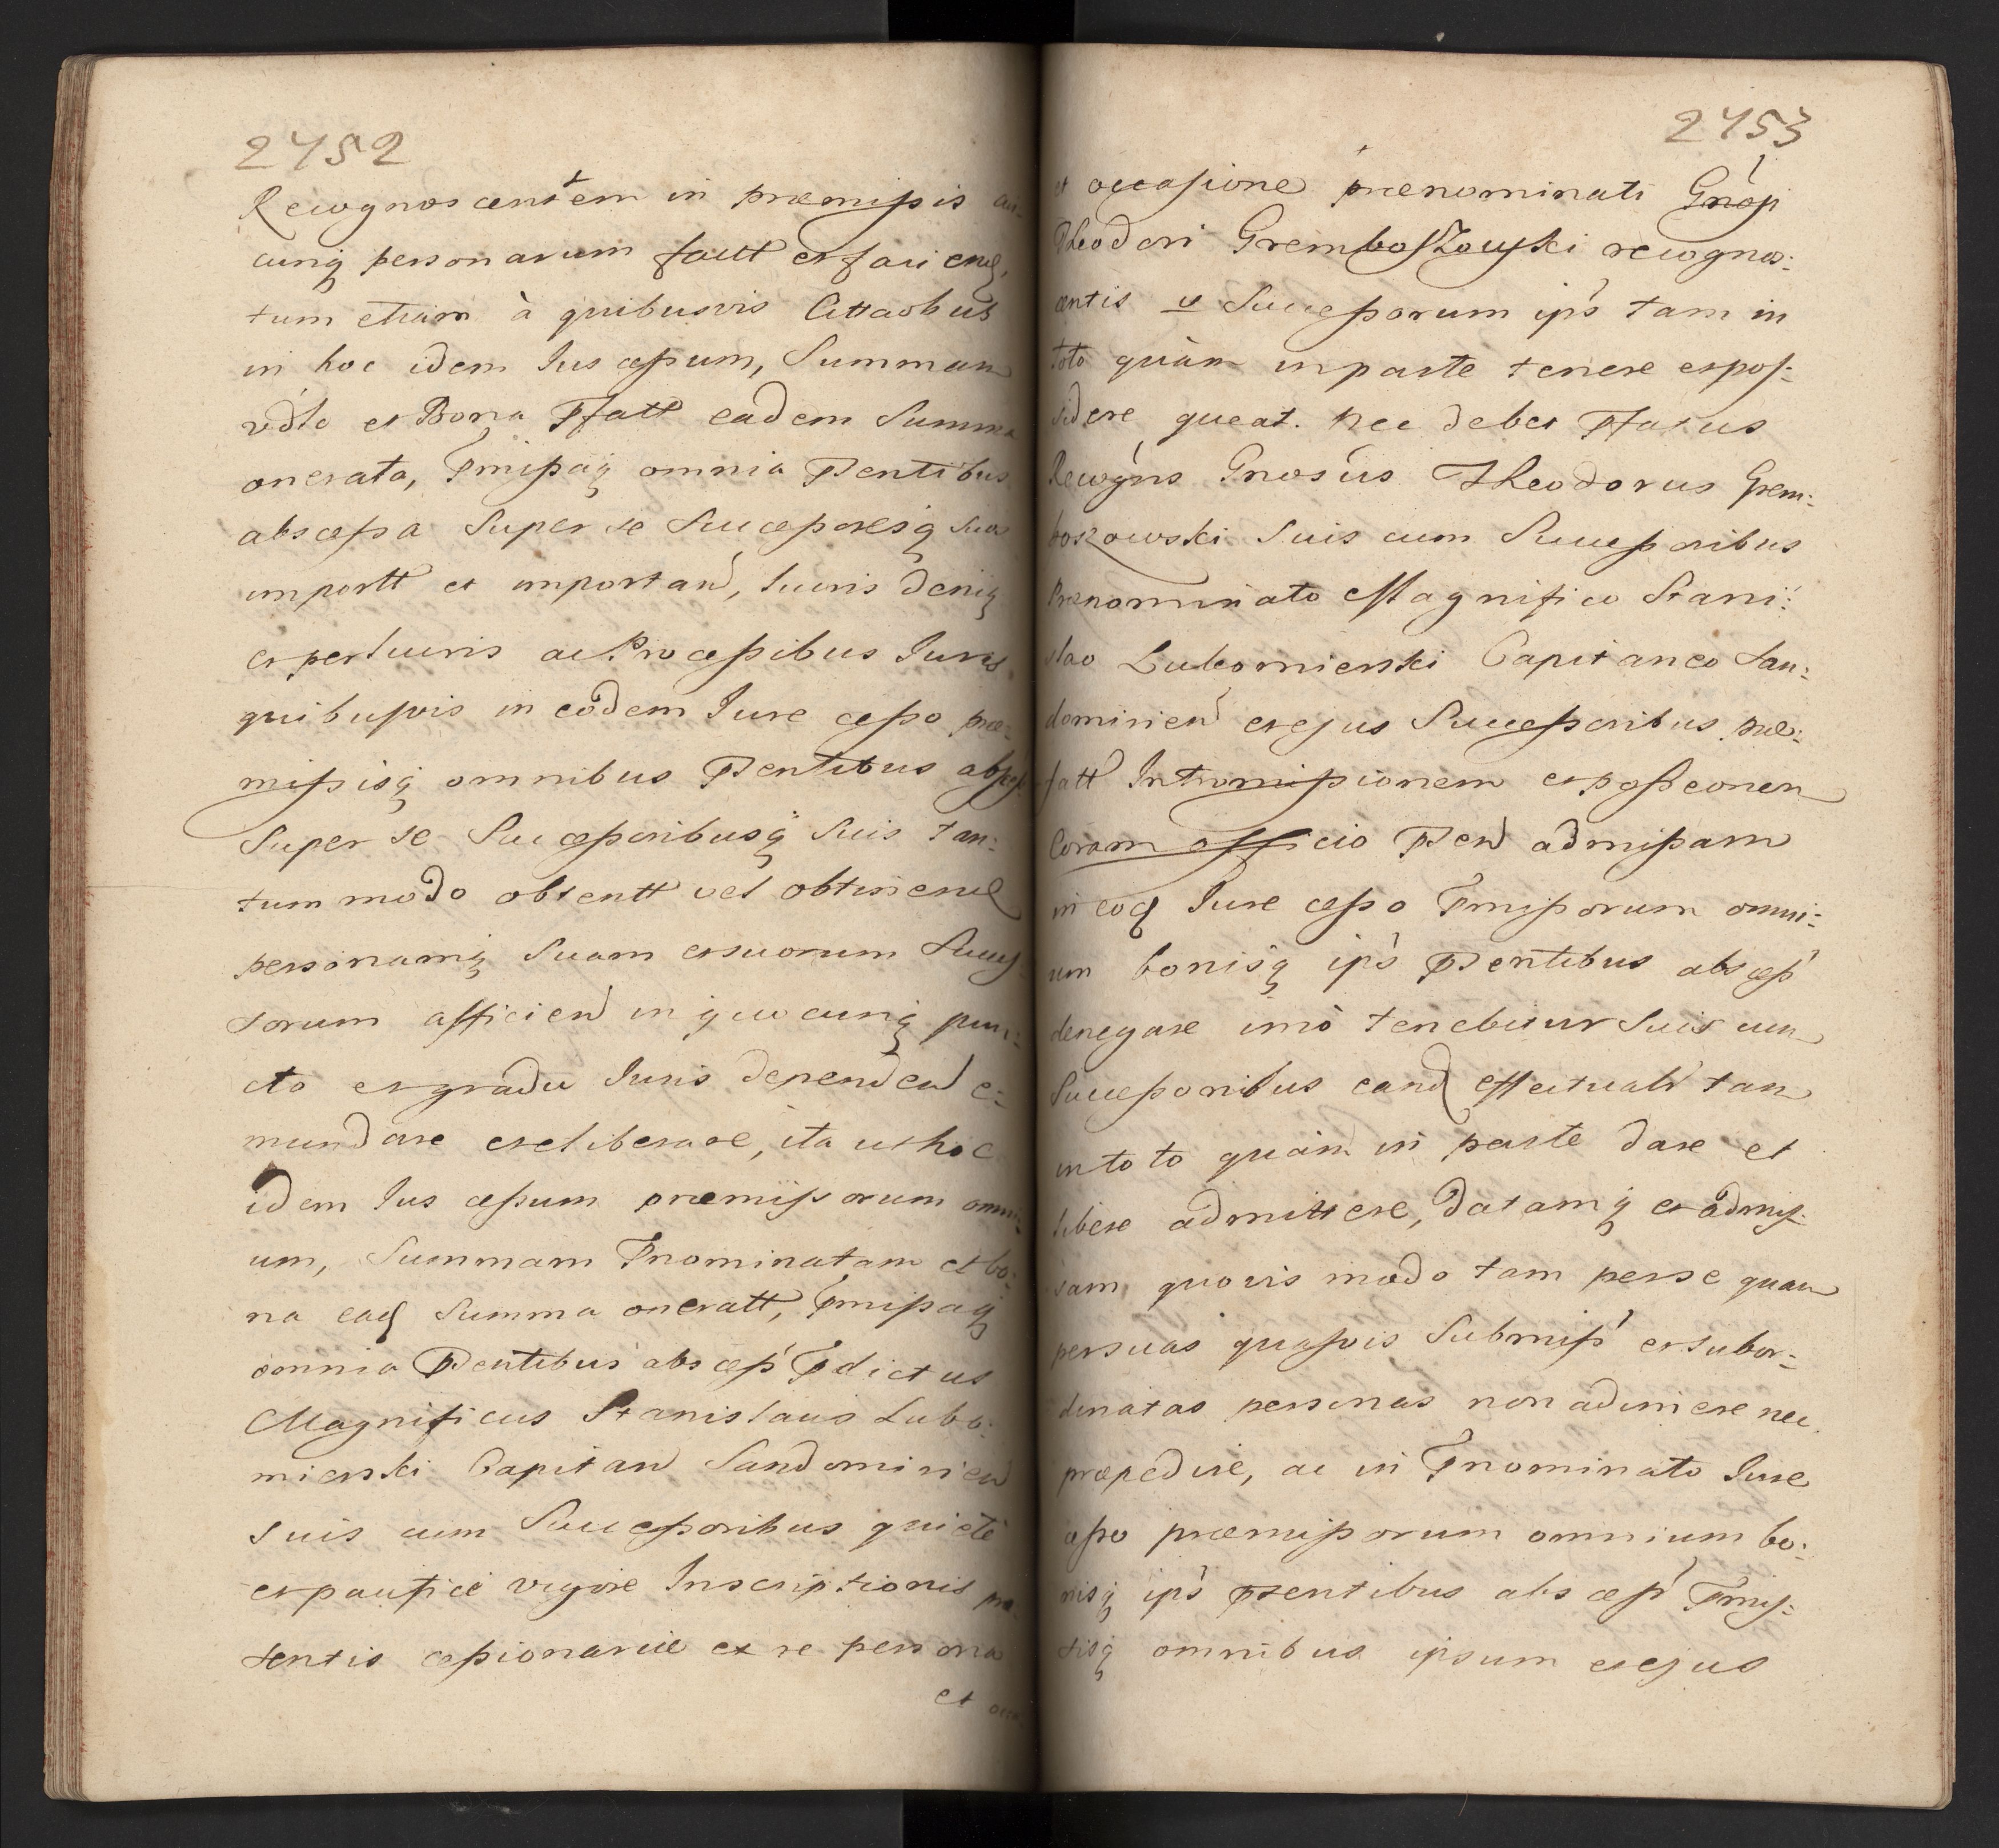 2452
Recognoscentem in præmissis
cunq personarum factt et faciend,
tum etiam à quibusvis Cittaobus
in hoc idem Ius cessum, Summam
vdto et Bona Pfatt eadem Summa
onerata, Pmissaq omnia Psentibus
abscessa Super se Successoresq suos
importt et importand, Iuris deniq
et perIuris ac Processibus Iuris
quibusvis in eodem Iure cesso præ:
missisq omnibus Psentibus
Super se Successoribusq Suis tan:
tum modo obtentt vel obtinend
personamq Suam et suorum Succes
sorum afficiend in quocunq pun:
cto et gradu Iuris dependend e:
mundare et eliberare, ita ut hoc
idem Ius cessum præmissorum omni:
um, Summam Pnominatam et bo:
na ead Summa oneratt, Pmissaq
omnia Psentibus abscess Pdictus
Magnificus Stanislaus Lubo:
mierski Capitan Sandomirien
suis cum Successoribus quietè
et pacificè vigore Inscriptionis præ:
sentis cessionariæ ex re persona
et occa
2453
et occasione prænominati Gnosi
Theodori Gremboszowski recognos:
centis v Successorum ips tam in
toto quàm in parte tenere et pos:
sidere queat. Nec debet Pfatus
Recogns Gnosus Theodorus Grem:
boszowski Suis cum Successoribus
Prænominato Magnifico Stani:
slao Lubomierski Capitaneo San:
domirien et ejus Successoribus præ:
fatt Intromissionem et possessionem
Coram officio Psen admissam
in eoq Iure cesso Pmissorum omni:
um bonisq ips Psentibus abscess
denegare imò tenebitur Suis cum
Successoribus eand effectualr tam
in toto quàm in parte dare et
libere admittere, datamq et admis:
sam quovis modo tam per se quam
per suas quasvis Submiss et subor:
dinatas personas non adimere nec
præpedire, ac in Pnominato Iure
cesso præmissorum omnium bo:
nisq ips Psentibus abscess Pmis:
sisq omnibus ipsum et ejus